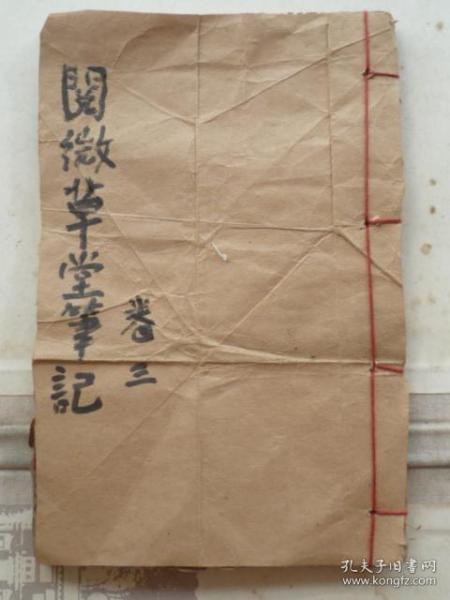 閱微草堂筆記
卷三
孔夫子旧书网
www.kongfz.com